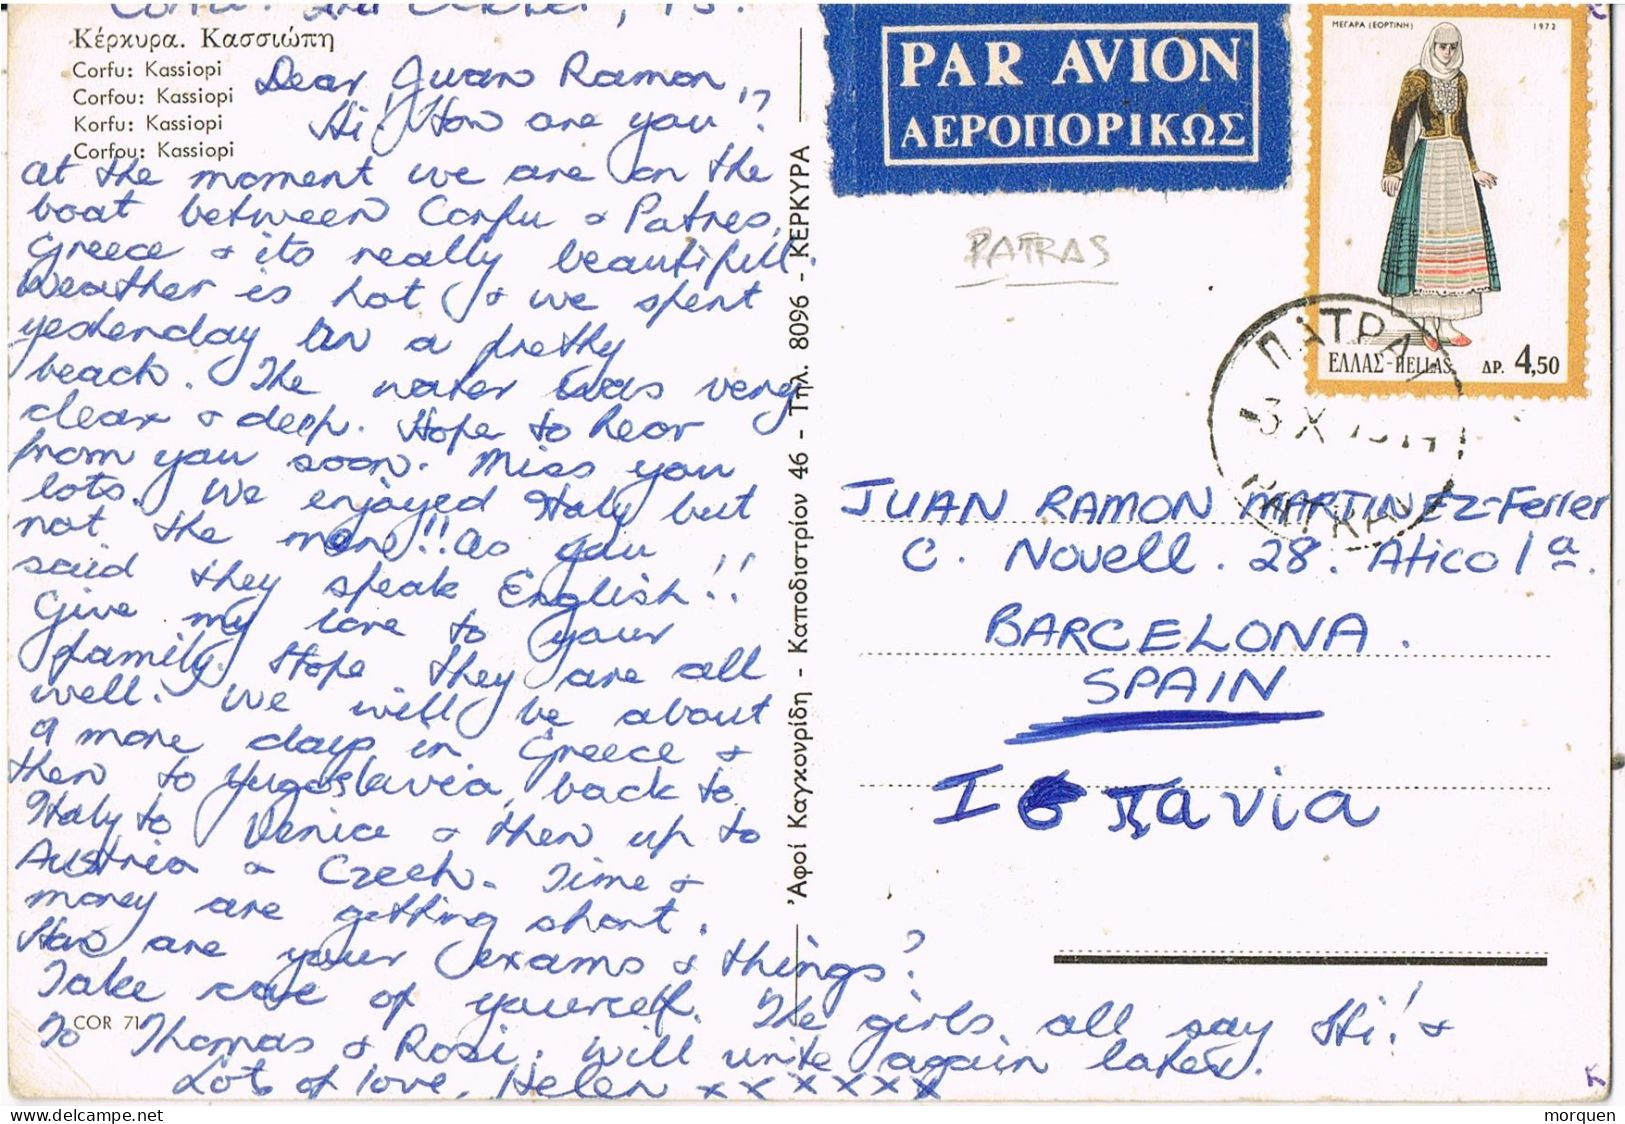 Corfu. 2nd October, 73.
Κέρκυρα. Κασσιώπη
Corfu: Kassiopi
Corfou: Kassiopi
Korfu: Kassiopi
Corfou: Kassiopi
Dear Juan Ramon,
Hi! How are you?
At the moment we are on the
boat between Corfu & Patres,
Greece & its really beautifull.
Weather is hot & we spent
yesterday on a pretty
beach. The water was very
clear & deep. Hope to hear
from you soon. Miss you
lots. We enjoyed Italy but
not the men!! As you
said they speak English!!
Give my love to your
family. Hope they are all
well. We will be about
9 more days in Greece &
then to Yugoslavia, back to
Italy to Venice & then up to
Austria & Czech. Time &
money are getting short.
How are your exams & things?
Take care of yourself. The girls all say Hi! &
To Thomas & Rosi. Will write again later.
Lots of love, Helen xxxxxx
COR 71
Ἀφοί Καγκουρίδη - Καποδιστρίου 46 - Τηλ. 8096 - ΚΕΡΚΥΡΑ
PAR AVION
ΑΕΡΟΠΟΡΙΚΩΣ
ΜΕΓΑΡΑ (ΕΟΡΤΙΝΗ) 1972
ΕΛΛΑΣ-HELLAS ΔΡ. 4,50
PATRAS
ΠΑΤΡΑΙ
-3 X
JUAN RAMON MARTINEZ-Ferrer
C. Novell. 28. Atico 1ª.
BARCELONA.
SPAIN
Ισπανία
K
morquen